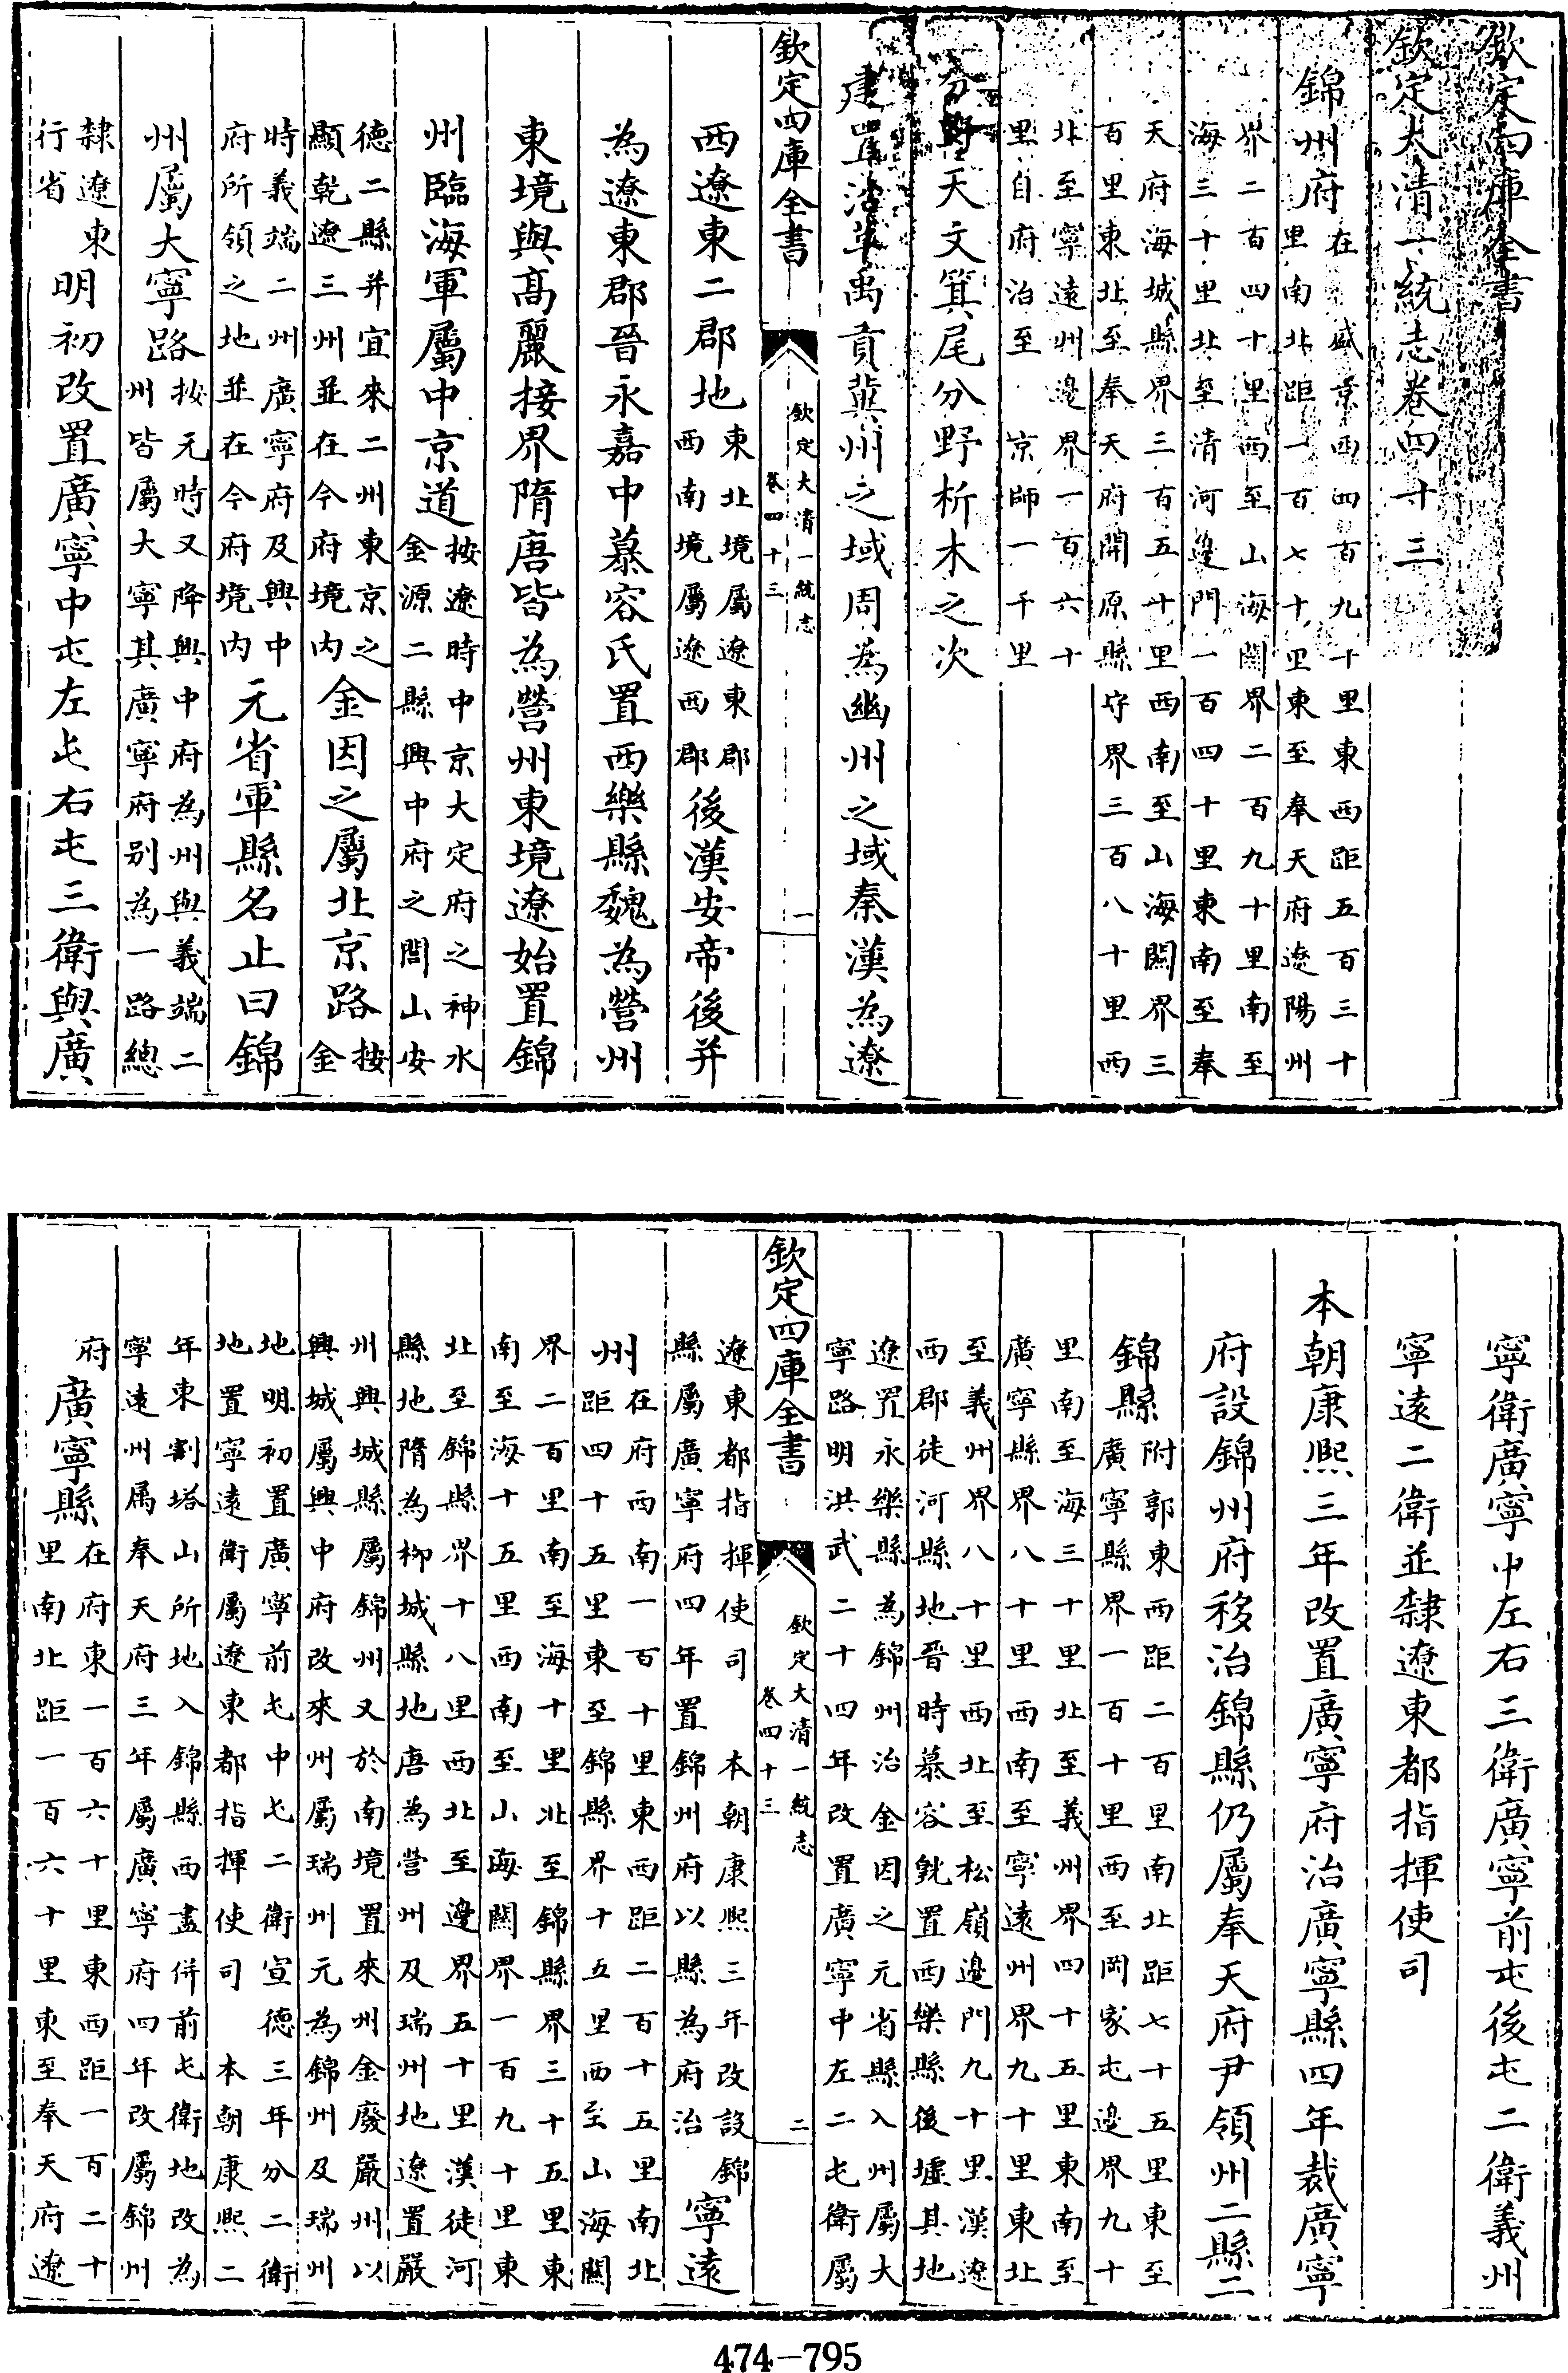 欽定四庫全書
欽定大清一統志卷四十三
錦州府在盛京西四百九十里東西距五百三十
里南北距一百七十里東至奉天府遼陽州
界二百四十里西至山海關界二百九十里南至
海三十里北至清河邊門一百四十里東南至奉
天府海城縣界三百五十里西南至山海關界三
百里東北至奉天府開原縣界三百八十里西
北至寧遠州邊界一百六十
里自府治至京師一千里
分野天文箕尾分野析木之次
建置沿革禹貢冀州之域周為幽州之域秦漢為遼
欽定四庫全書 欽定大清一統志 卷四十三 一
西遼東二郡地東北境屬遼東郡
西南境屬遼西郡後漢安帝後并
為遼東郡晉永嘉中慕容氏置西樂縣魏為營州
東境與高麗接界隋唐皆為營州東境遼始置錦
州臨海軍屬中京道按遼時中京大定府之神水
金源二縣興中府之閭山安
德二縣并宜來二州東京之
顯乾遼三州並在今府境內金因之屬北京路按
金
時義端二州廣寧府及興中
府所領之地並在今府境內元省軍縣名止曰錦
州屬大寧路按元時又降興中府為州與義端二
州皆屬大寧其廣寧府别為一路總
隸遼東
行省明初改置廣寧中屯左屯右屯三衛與廣
寧衛廣寧中左右三衛廣寧前屯後屯二衛義州
寧遠二衛並隸遼東都指揮使司
本朝康熙三年改置廣寧府治廣寧縣四年裁廣寧
府設錦州府移治錦縣仍屬奉天府尹領州二縣二
錦縣附郭東西距二百里南北距七十五里東至
廣寧縣界一百十里西至岡家屯邊界九十
里南至海三十里北至義州界四十五里東南至
廣寧縣界八十里西南至寧遠州界九十里東北
至義州界八十里西北至松嶺邊門九十里漢遼
西郡徒河縣地晉時慕容皝置西樂縣後墟其地
遼置永樂縣為錦州治金因之元省縣入州屬大
寧路明洪武二十四年改置廣寧中左二屯衛屬
欽定四庫全書 欽定大清一統志 卷四十三 二
遼東都指揮使司本朝康熙三年改設錦
縣屬廣寧府四年置錦州府以縣為府治寧遠
州在府西南一百十里東西距二百十五里南北
距四十五里東至錦縣界十五里西至山海關
界二百里南至海十里北至錦縣界三十五里東
南至海十五里西南至山海關界一百九十里東
北至錦縣界十八里西北至邊界五十里漢徒河
縣地隋為柳城縣地唐為營州及瑞州地遼置嚴
州興城縣屬錦州又於南境置來州金廢嚴州以
興城屬興中府改來州屬瑞州元為錦州及瑞州
地明初置廣寧前屯中屯二衛宣德三年分二衛
地置寧遠衛屬遼東都指揮使司本朝康熙二
年東割塔山所地入錦縣西盡併前屯衛地改為
寧遠州属奉天府三年屬廣寧府四年改屬錦州
府廣寧縣在府東一百六十里東西距一百二十
里南北距一百六十里東至奉天府遼
474—795